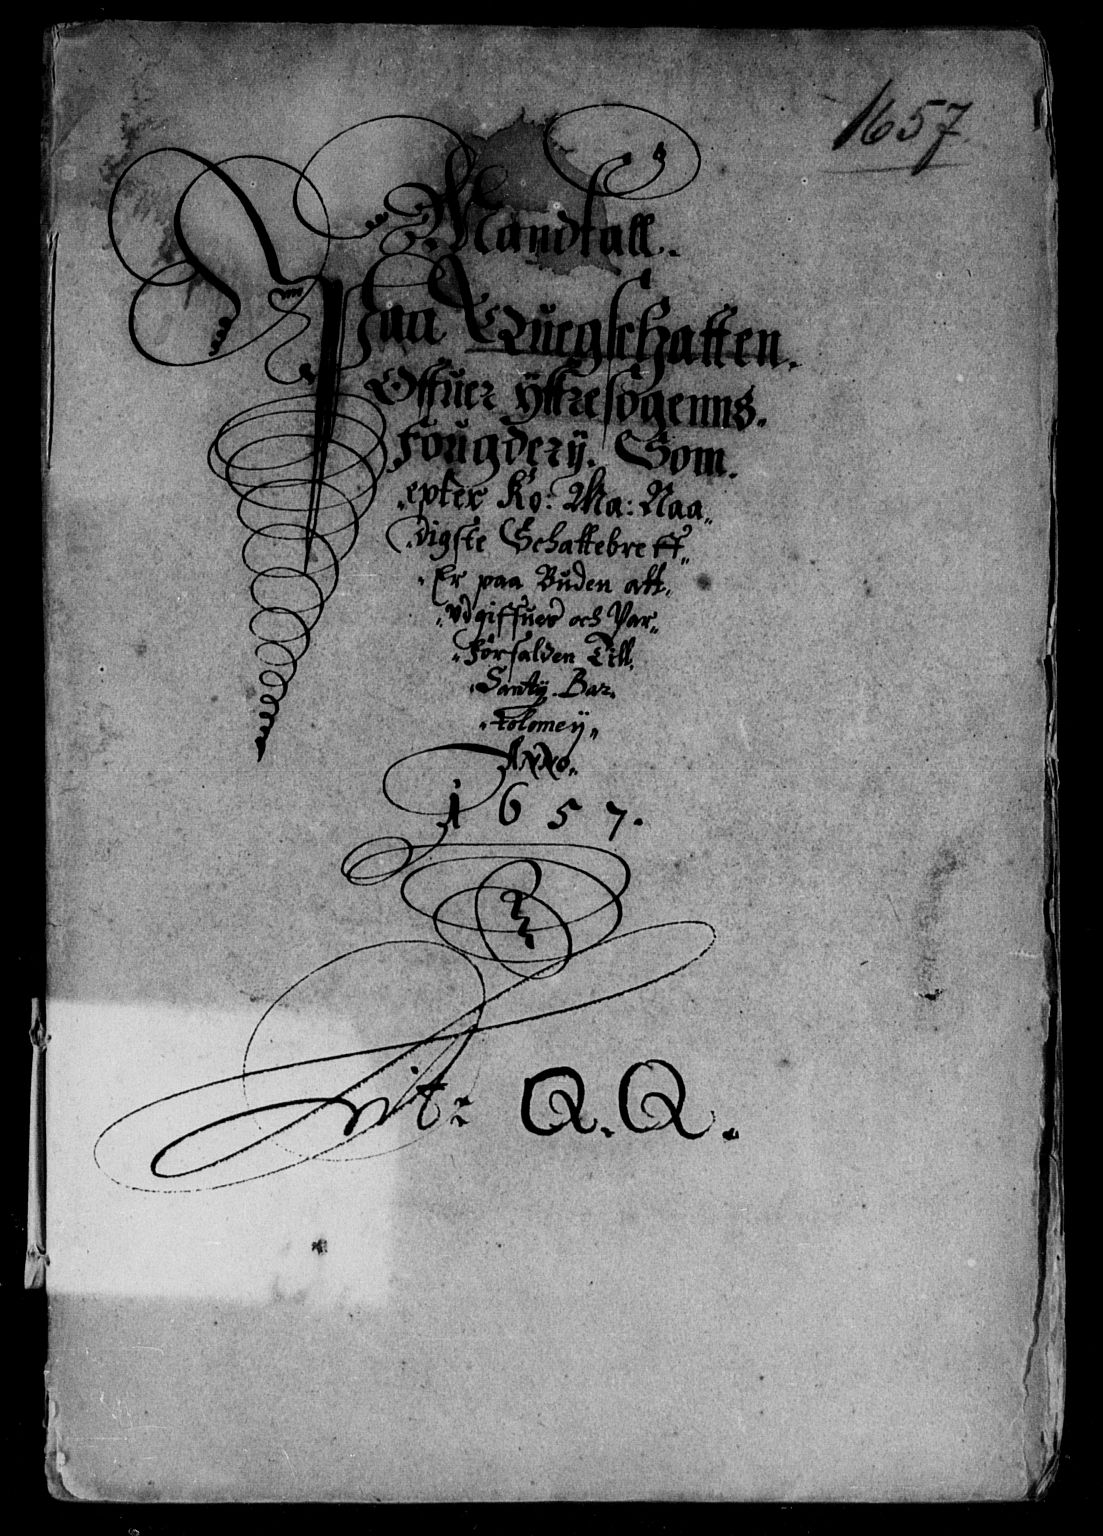 1657
Mandtall.
Paa Quegschatten.
Offuer ÿttresögenns.
fougderÿ. Som.
epter Ko: Ma: Naa„
digste Schattebreff„
Er paa Buden att.
vdgiffues och Var„
forfalden Till.
Sancty Bar.
tolomeÿ„
Anno.
1657.
Lit: Q.Q.